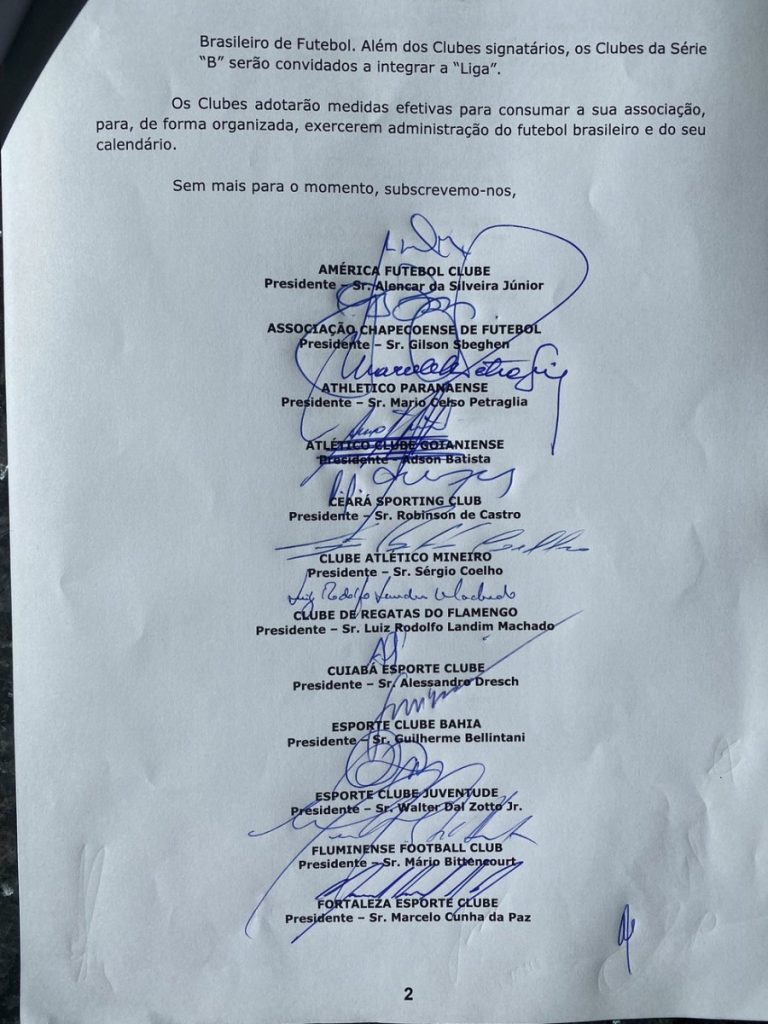 Brasileiro de Futebol. Além dos Clubes signatários, os Clubes da Série
“B” serão convidados a integrar a “Liga”.
Os Clubes adotarão medidas efetivas para consumar a sua associação,
para, de forma organizada, exercerem administração do futebol brasileiro e do seu
calendário.
Sem mais para o momento, subscrevemo-nos,
AMÉRICA FUTEBOL CLUBE
Presidente – Sr. Alencar da Silveira Júnior
ASSOCIAÇÃO CHAPECOENSE DE FUTEBOL
Presidente – Sr. Gilson Sbeghen
ATHLETICO PARANAENSE
Presidente – Sr. Mario Celso Petraglia
ATLÉTICO CLUBE GOIANIENSE
Presidente - Adson Batista
CEARÁ SPORTING CLUB
Presidente – Sr. Robinson de Castro
CLUBE ATLÉTICO MINEIRO
Presidente – Sr. Sérgio Coelho
Luiz Rodolfo Landim Machado
CLUBE DE REGATAS DO FLAMENGO
Presidente – Sr. Luiz Rodolfo Landim Machado
CUIABÁ ESPORTE CLUBE
Presidente – Sr. Alessandro Dresch
ESPORTE CLUBE BAHIA
Presidente – Sr. Guilherme Bellintani
ESPORTE CLUBE JUVENTUDE
Presidente – Sr. Walter Dal Zotto Jr.
FLUMINENSE FOOTBALL CLUB
Presidente – Sr. Mário Bittencourt
FORTALEZA ESPORTE CLUBE
Presidente – Sr. Marcelo Cunha da Paz
2